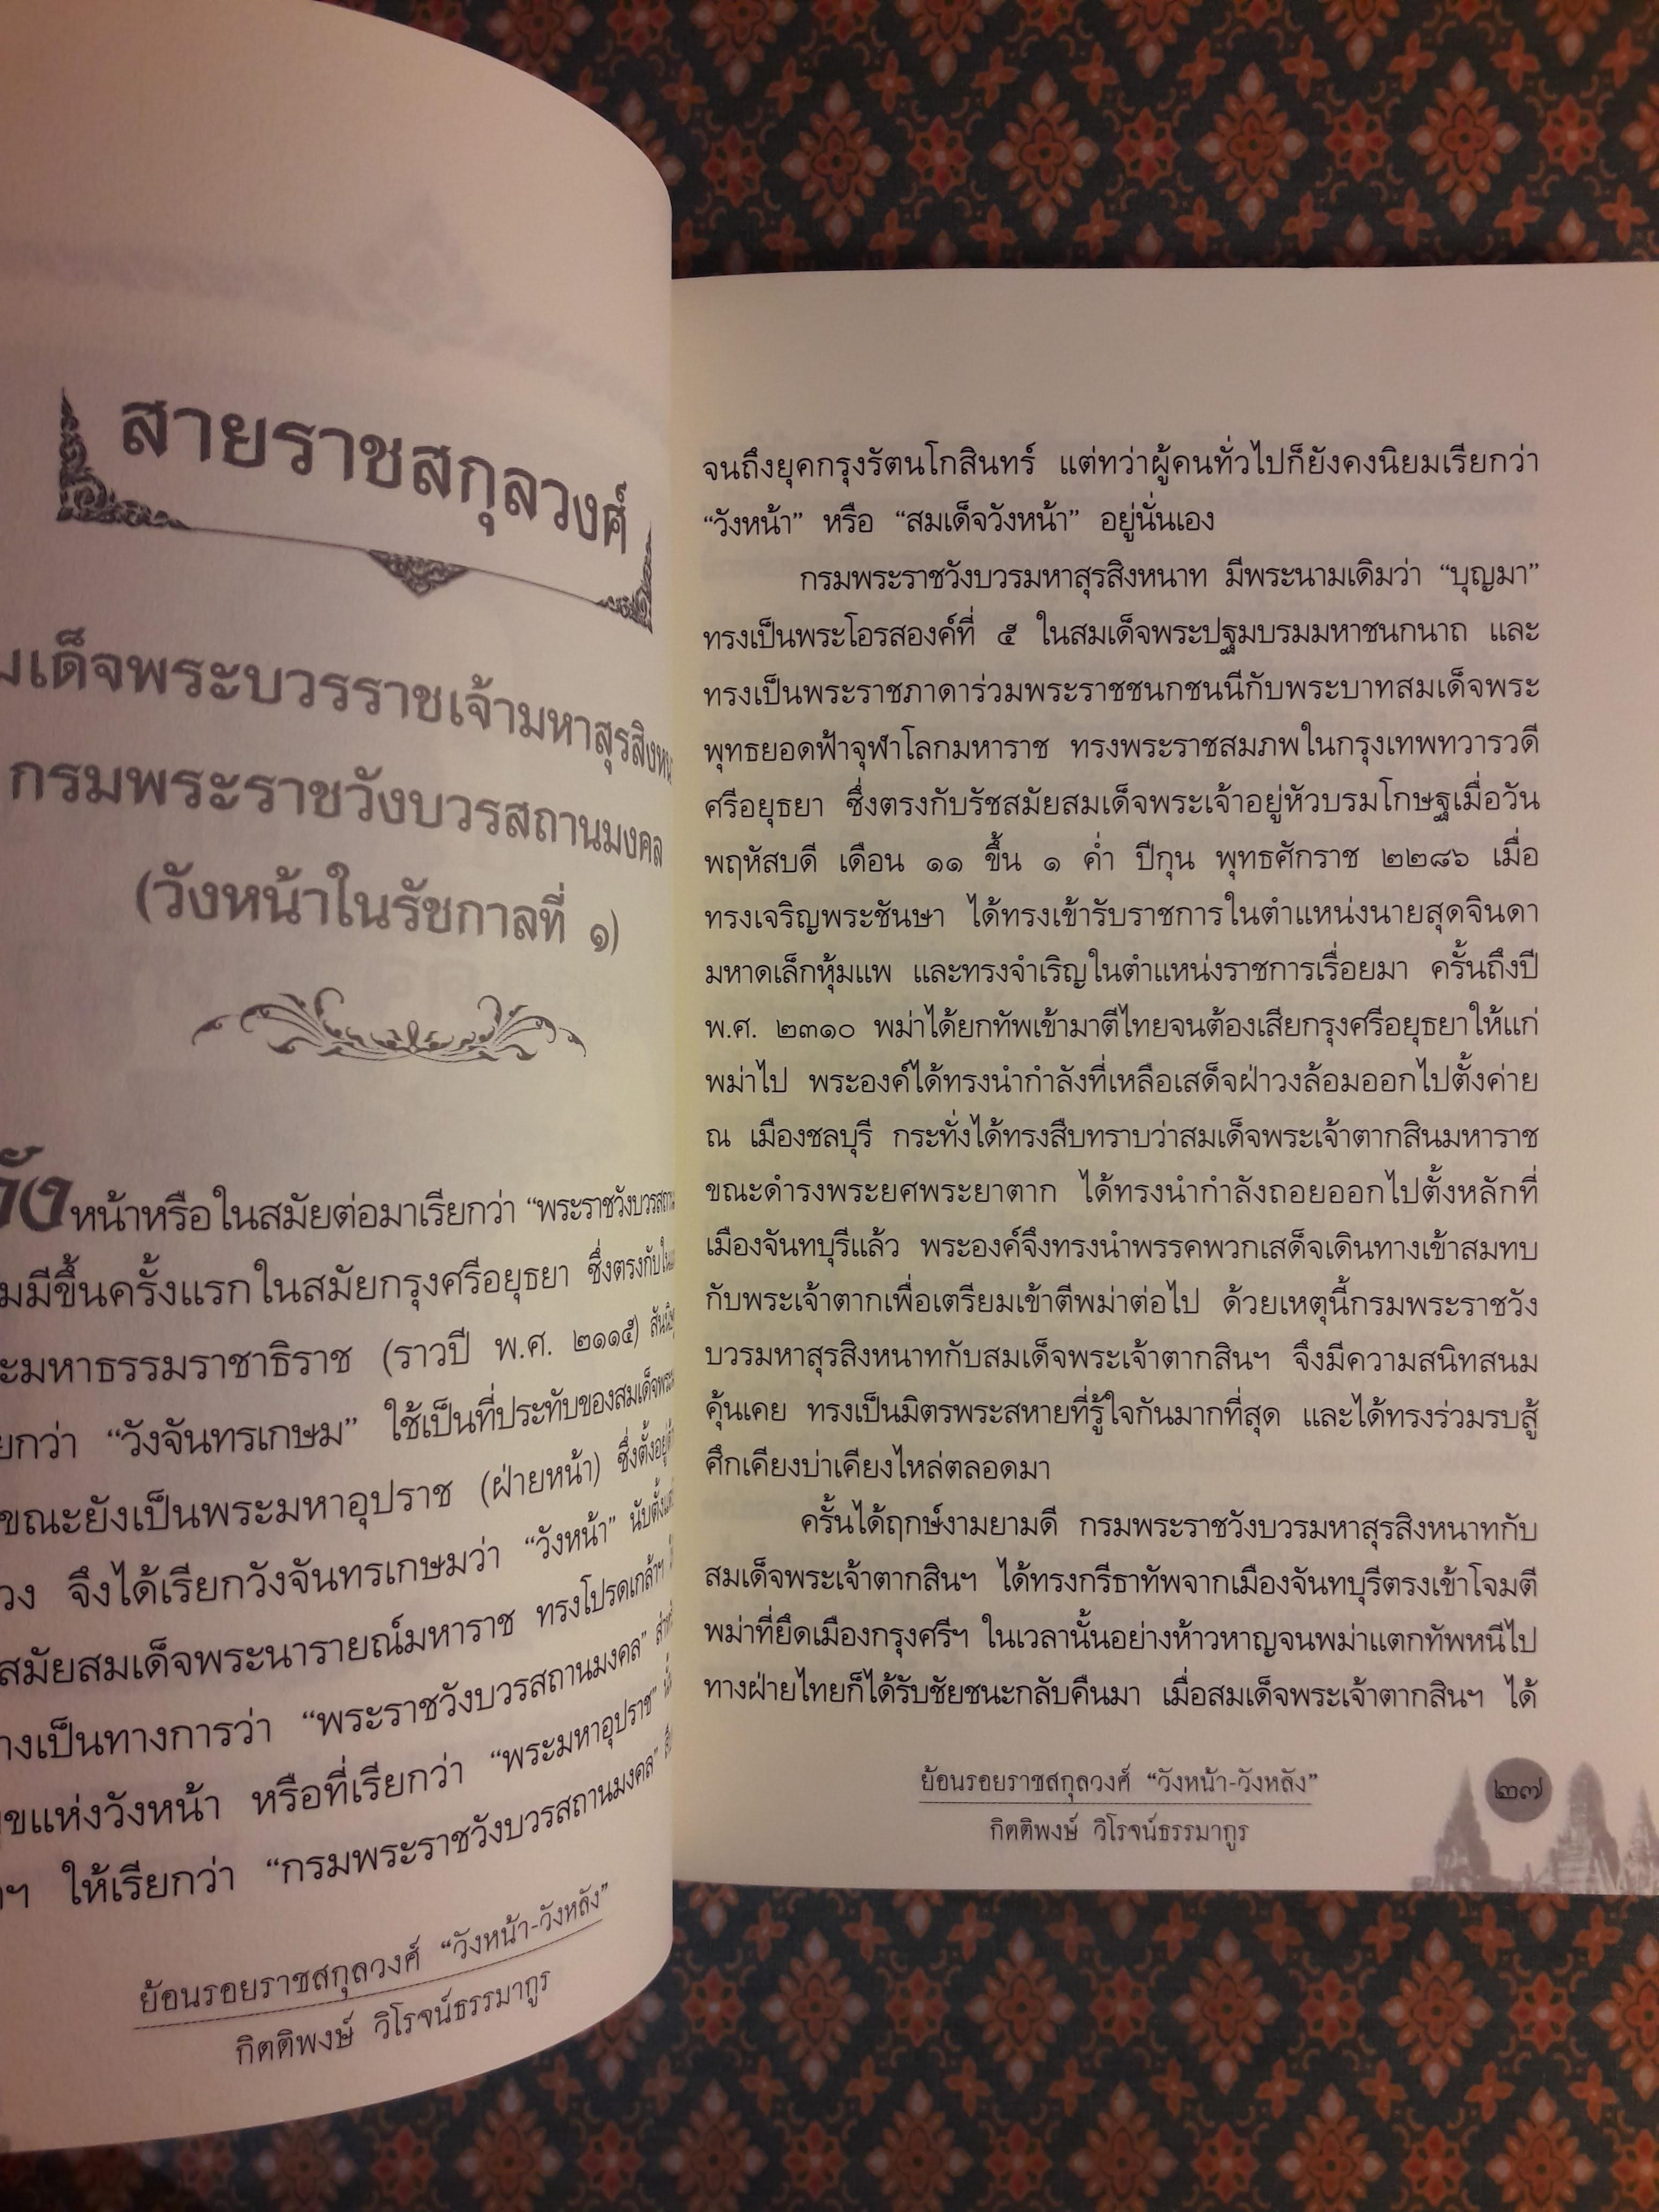 สายราชสกุลวงศ์
มเด็จพระบวรราชเจ้ามหาสุรสิงห
กรมพระราชวังบวรสถานมงคล
(วังหน้าในรัชกาลที่ ๑)
วังหน้าหรือในสมัยต่อมาเรียกว่า “พระราชวังบวรสถาน
มมีขึ้นครั้งแรกในสมัยกรุงศรีอยุธยา ซึ่งตรงกับใน
ะมหาธรรมราชาธิราช (ราวปี พ.ศ. ๒๑๑๕)
ยกว่า “วังจันทรเกษม” ใช้เป็นที่ประทับของสมเด็จพระ
ขณะยังเป็นพระมหาอุปราช (ฝ่ายหน้า) ซึ่งตั้งอยู่
วง จึงได้เรียกวังจันทรเกษมว่า “วังหน้า” นับตั้งแต่
สมัยสมเด็จพระนารายณ์มหาราช ทรงโปรดเกล้าฯ
างเป็นทางการว่า “พระราชวังบวรสถานมงคล”
ขแห่งวังหน้า หรือที่เรียกว่า “พระมหาอุปราช”
ฯ ให้เรียกว่า “กรมพระราชวังบวรสถานมงคล”
ย้อนรอยราชสกุลวงศ์ “วังหน้า-วังหลัง”
กิตติพงษ์ วิโรจน์ธรรมากูร
จนถึงยุคกรุงรัตนโกสินทร์ แต่ทว่าผู้คนทั่วไปก็ยังคงนิยมเรียกว่า
“วังหน้า” หรือ “สมเด็จวังหน้า” อยู่นั่นเอง
กรมพระราชวังบวรมหาสุรสิงหนาท มีพระนามเดิมว่า “บุญมา”
ทรงเป็นพระโอรสองค์ที่ ๕ ในสมเด็จพระปฐมบรมมหาชนกนาถ และ
ทรงเป็นพระราชภาดาร่วมพระราชชนกชนนีกับพระบาทสมเด็จพระ
พุทธยอดฟ้าจุฬาโลกมหาราช ทรงพระราชสมภพในกรุงเทพทวารวดี
ศรีอยุธยา ซึ่งตรงกับรัชสมัยสมเด็จพระเจ้าอยู่หัวบรมโกษฐเมื่อวัน
พฤหัสบดี เดือน ๑๑ ขึ้น ๑ ค่ำ ปีกุน พุทธศักราช ๒๒๘๖ เมื่อ
ทรงเจริญพระชันษา ได้ทรงเข้ารับราชการในตำแหน่งนายสุดจินดา
มหาดเล็กหุ้มแพ และทรงจำเริญในตำแหน่งราชการเรื่อยมา ครั้นถึงปี
พ.ศ. ๒๓๑๐ พม่าได้ยกทัพเข้ามาตีไทยจนต้องเสียกรุงศรีอยุธยาให้แก่
พม่าไป พระองค์ได้ทรงนำกำลังที่เหลือเสด็จฝ่าวงล้อมออกไปตั้งค่าย
ณ เมืองชลบุรี กระทั่งได้ทรงสืบทราบว่าสมเด็จพระเจ้าตากสินมหาราช
ขณะดำรงพระยศพระยาตาก ได้ทรงนำกำลังถอยออกไปตั้งหลักที่
เมืองจันทบุรีแล้ว พระองค์จึงทรงนำพรรคพวกเสด็จเดินทางเข้าสมทบ
กับพระเจ้าตากเพื่อเตรียมเข้าตีพม่าต่อไป ด้วยเหตุนี้กรมพระราชวัง
บวรมหาสุรสิงหนาทกับสมเด็จพระเจ้าตากสินฯ จึงมีความสนิทสนม
คุ้นเคย ทรงเป็นมิตรพระสหายที่รู้ใจกันมากที่สุด และได้ทรงร่วมรบสู้
ศึกเคียงบ่าเคียงไหล่ตลอดมา
ครั้นได้ฤกษ์งามยามดี กรมพระราชวังบวรมหาสุรสิงหนาทกับ
สมเด็จพระเจ้าตากสินฯ ได้ทรงกรีธาทัพจากเมืองจันทบุรีตรงเข้าโจมตี
พม่าที่ยึดเมืองกรุงศรีฯ ในเวลานั้นอย่างห้าวหาญจนพม่าแตกทัพหนีไป
ทางฝ่ายไทยก็ได้รับชัยชนะกลับคืนมา เมื่อสมเด็จพระเจ้าตากสินฯ ได้
ย้อนรอยราชสกุลวงศ์ “วังหน้า-วังหลัง”
กิตติพงษ์ วิโรจน์ธรรมากูร
๒๗